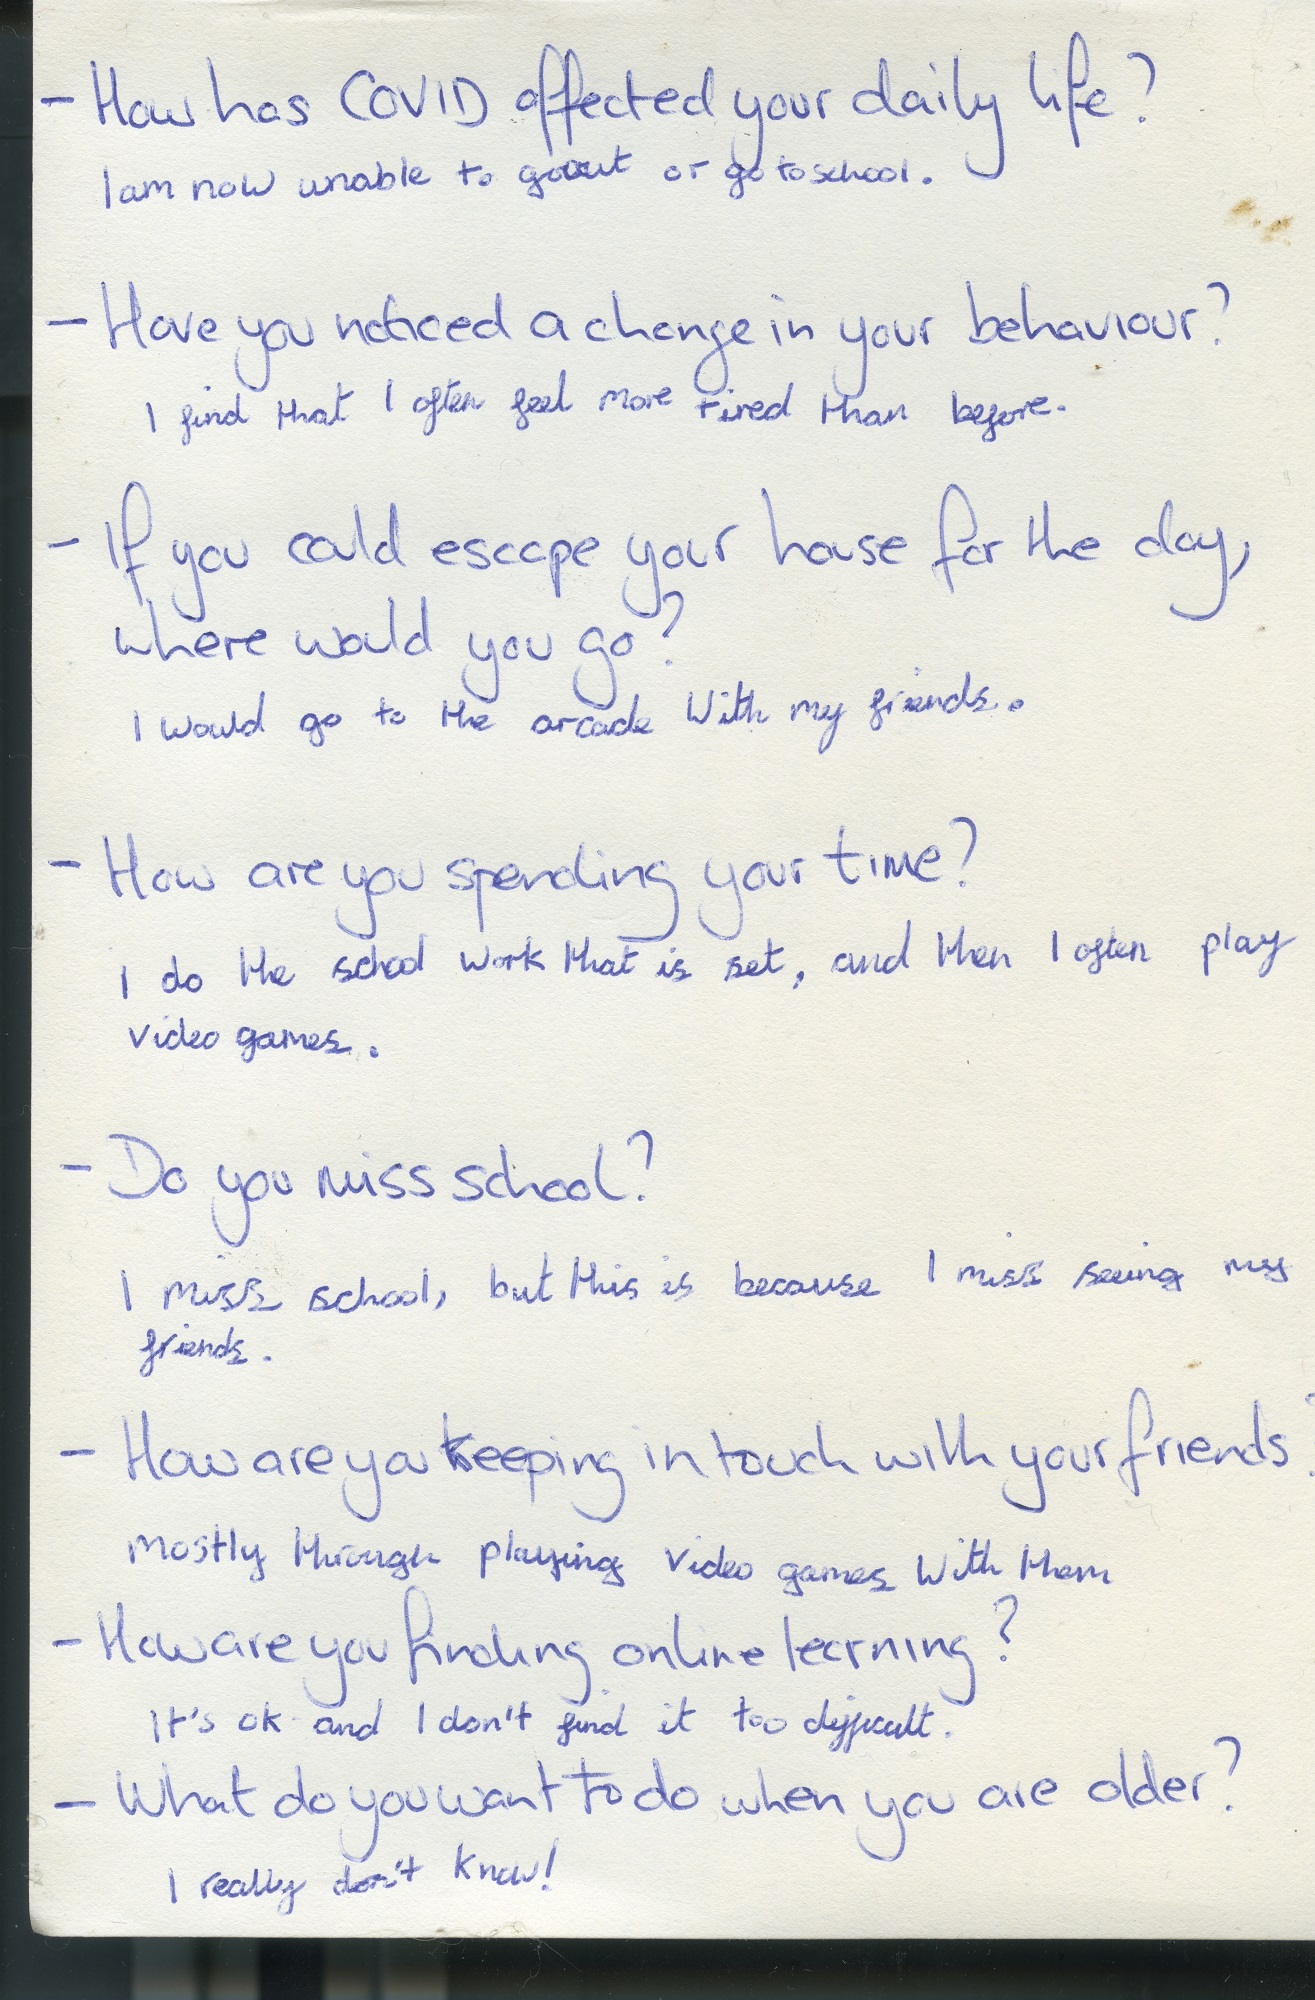 - How has COVID affected your daily life?
I am now unable to go out or go to school.
- Have you noticed a change in your behaviour?
I find that I often feel more tired than before.
- If you could escape your house for the day,
where would you go?
I would go to the arcade with my friends.
- How are you spending your time?
I do the school work that is set, and then I often play
video games.
- Do you miss school?
I miss school, but this is because I miss seeing my
friends.
- How are you keeping in touch with your friends?
Mostly through playing video games with them
- How are you finding online learning?
It's ok and I don't find it too difficult.
- What do you want to do when you are older?
I really don't know!